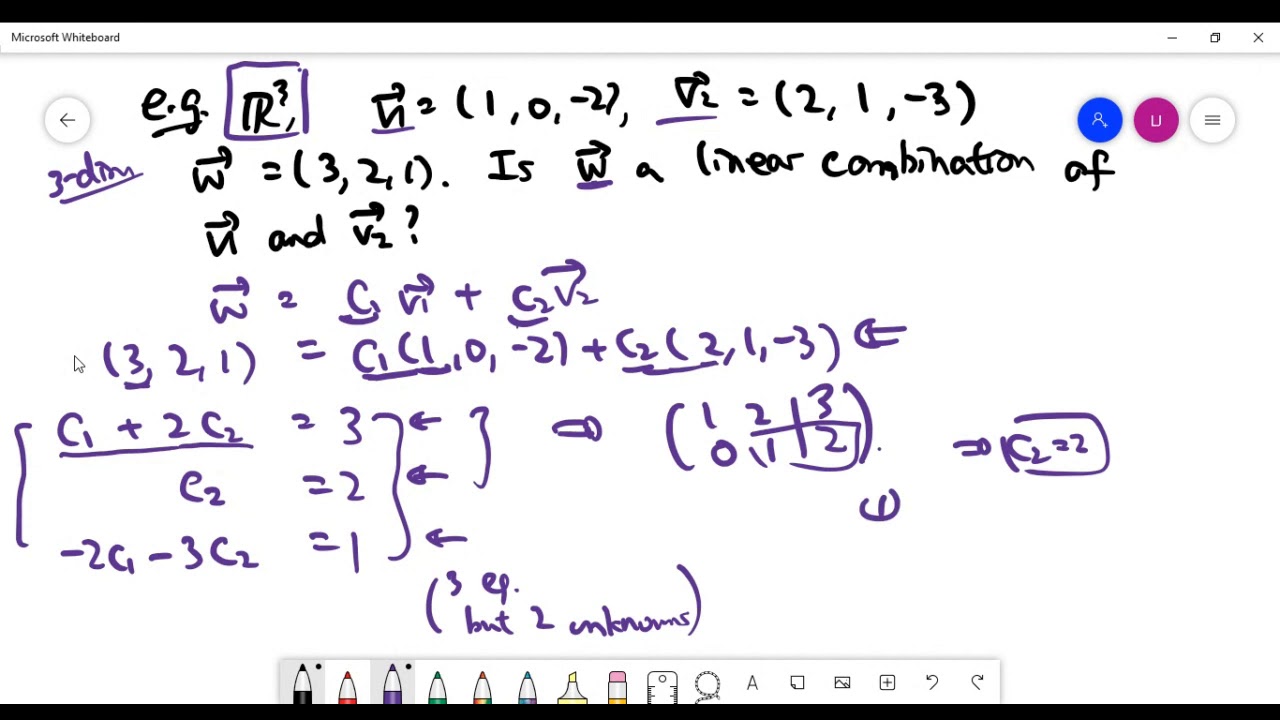 Microsoft Whiteboard
e.g. ℝ³, v⃗1 = (1, 0, -2), v⃗2 = (2, 1, -3)
3-dim w⃗ = (3, 2, 1). Is w⃗ a linear combination of
v⃗1 and v⃗2?
w⃗ = c1 v⃗1 + c2 v⃗2
(3, 2, 1) = c1(1, 0, -2) + c2(2, 1, -3) ←
c1 + 2c2 = 3 ← ⇒ (1 2 | 3
0 1 | 2). ⇒ c2=2
c2 = 2 ←
-2c1 - 3c2 = 1 ←
(3 eq.
but 2 unknowns)
LJ
A